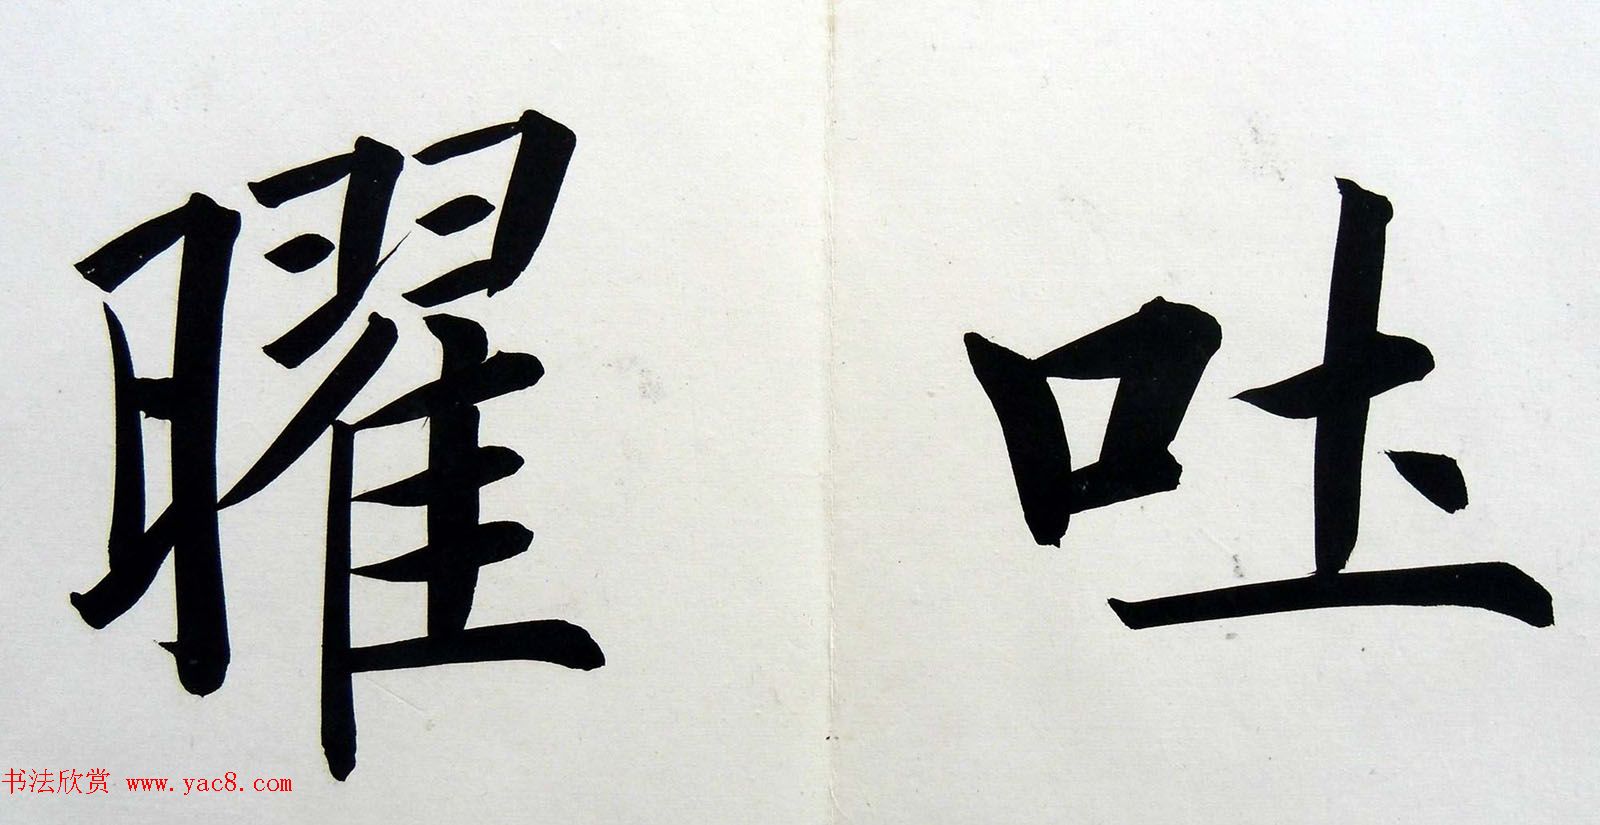 吐
曜
书法欣赏 www.yac8.com